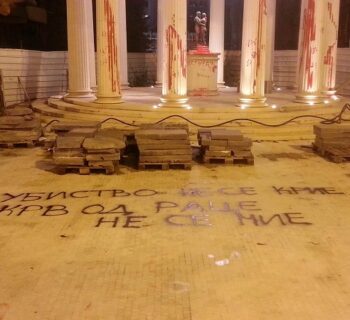 УБИСТВО НЕ СЕ КРИЕ
КРВ ОД РАЦЕ
НЕ СЕ МИЕ